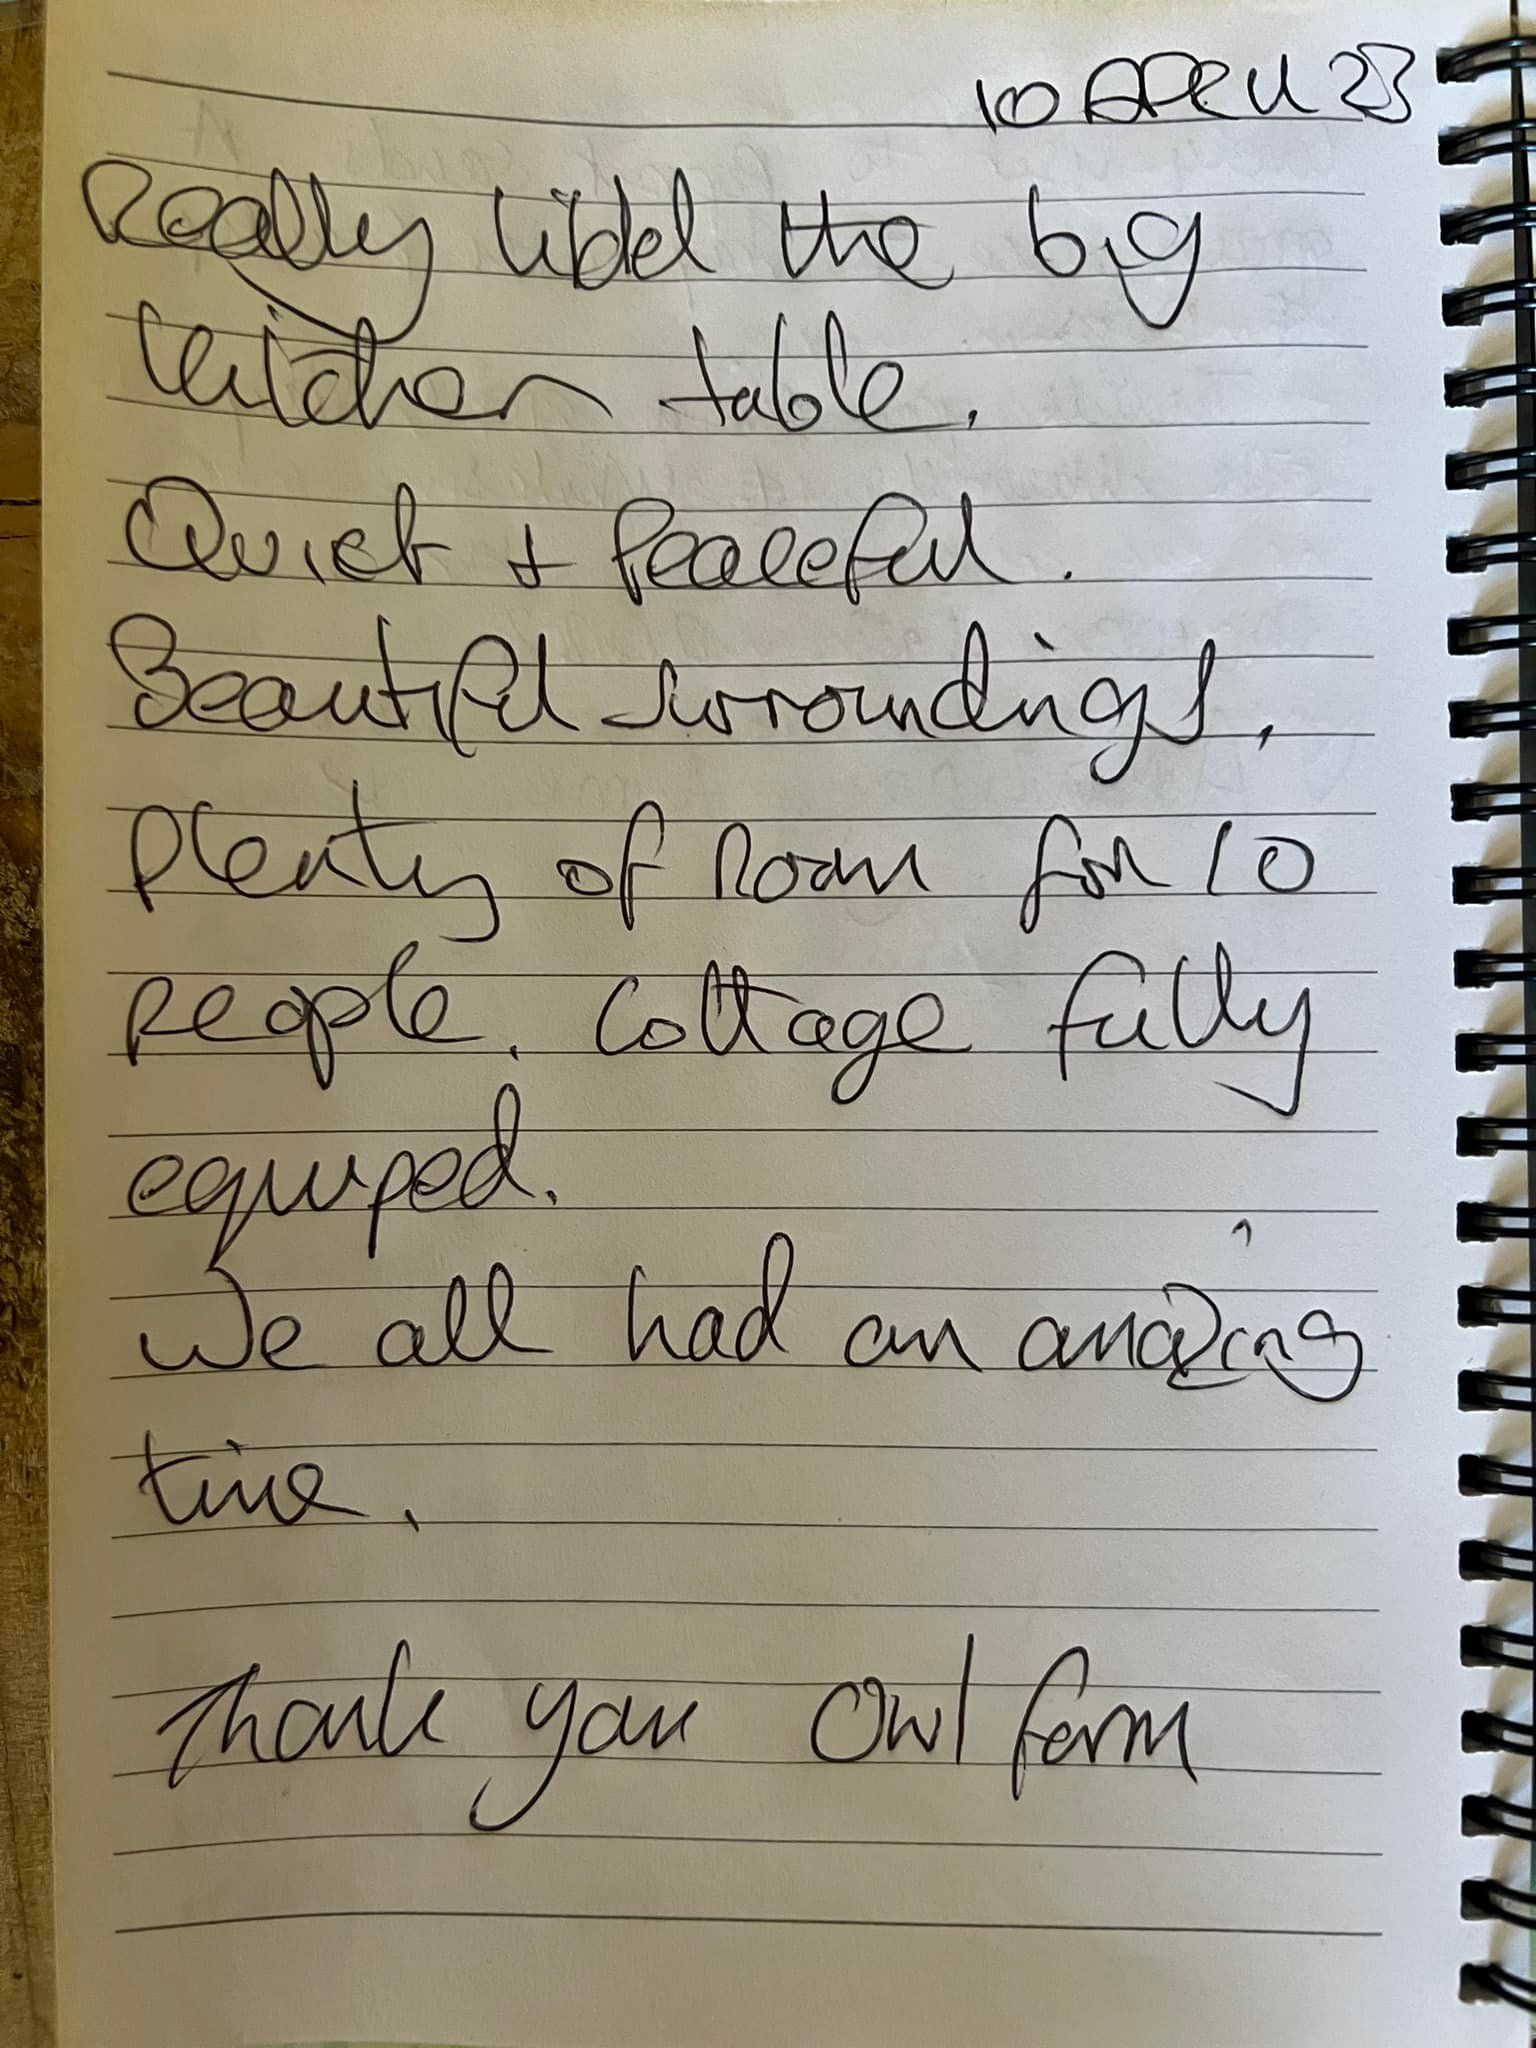 10 APRIL 23
Really liked the big
kitchen table.
Quiet + Peaceful.
Beautiful surroundings.
Plenty of Room for 10
people. Cottage fully
equiped.
We all had an amazing
time.
Thank you Owl farm